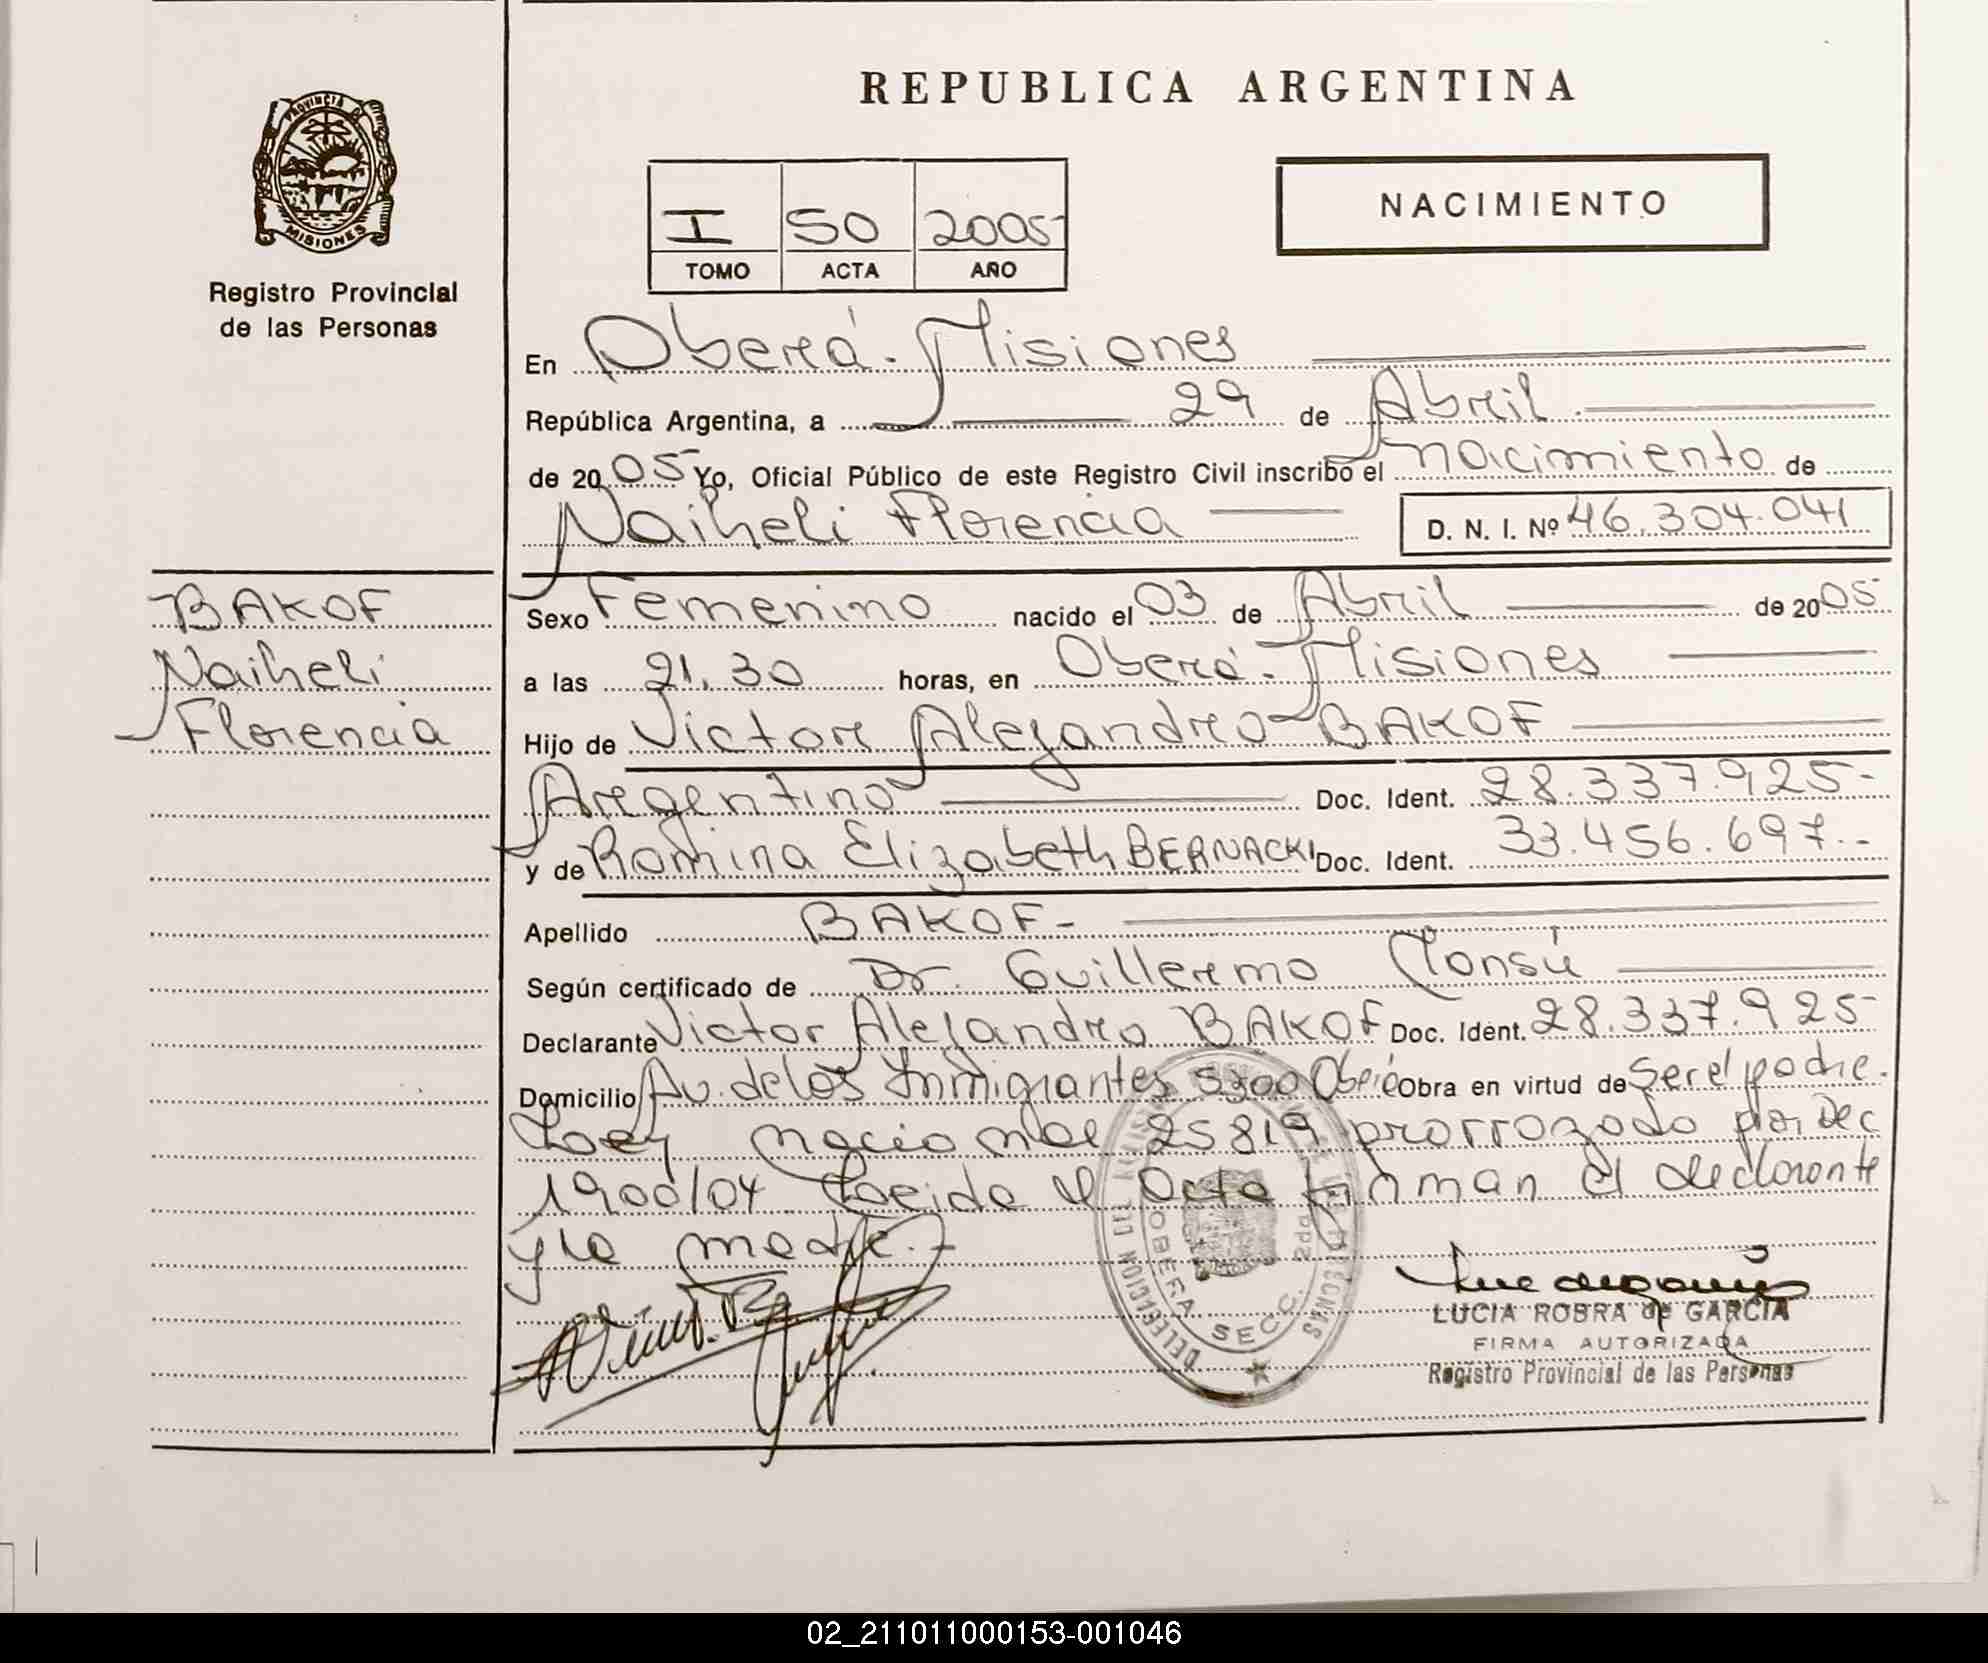 PROVINCIA DE
MISIONES
Registro Provincial
de las Personas
BAKOF
Naiheli
Florencia
REPUBLICA ARGENTINA
I 50 2005-
TOMO ACTA AÑO
NACIMIENTO
En Oberá - Misiones
República Argentina, a 29 de Abril
de 2005 Yo, Oficial Público de este Registro Civil inscribo el nacimiento de
Naiheli Florencia D. N. I. Nº 46.304.041
Sexo Femenino nacido el 03 de Abril de 2005
a las 21,30 horas, en Oberá - Misiones
Hijo de Victor Alejandro BAKOF
Argentino Doc. Ident. 28.337.925-
y de Romina Elizabeth BERNACKI Doc. Ident. 33.456.697.-
Apellido BAKOF-
Según certificado de Dr. Guillermo Monsú
Declarante Victor Alejandro BAKOF Doc. Ident. 28.337.925-
Domicilio Av. de los Inmigrantes 5300 Oberá Obra en virtud de ser el padre.
Ley nacional 25819 prorrogado por Dec
1900/04 Leida el Acta firman el declarante
y la madre.-
DELEGACION DEL REGISTRO PROVINCIAL DE LAS PERSONAS
OBERA SECC. 2da
LUCIA ROBRA de GARCIA
FIRMA AUTORIZADA
Registro Provincial de las Personas
02_211011000153-001046